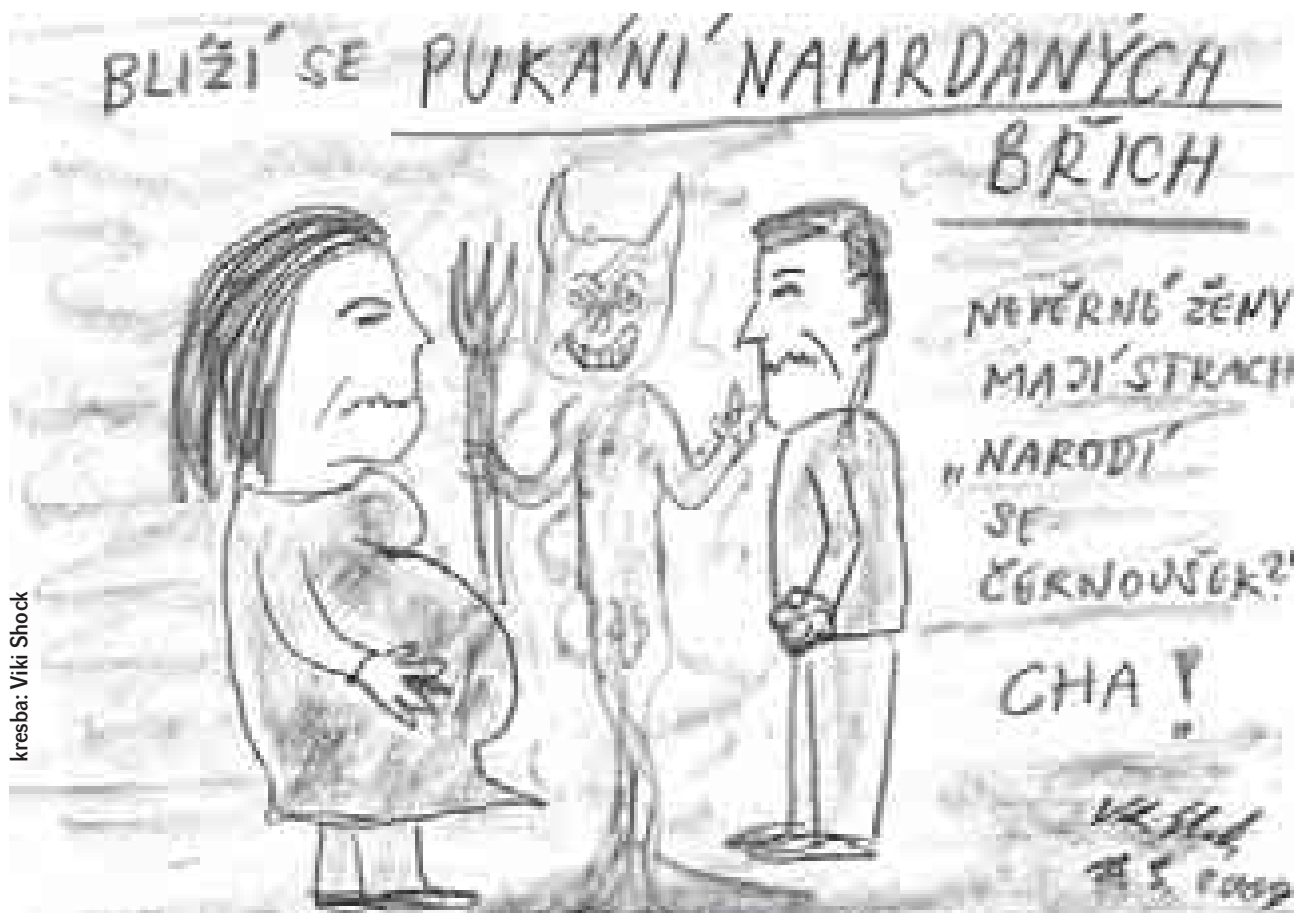 BLÍŽÍ SE PUKÁNÍ NAMRDANÝCH
BŘICH
NEVĚRNÉ ŽENY
MAJÍ STRACH
„NARODÍ
SE
ČERNOUŠEK?"
CHA!
kresba: Viki Shock